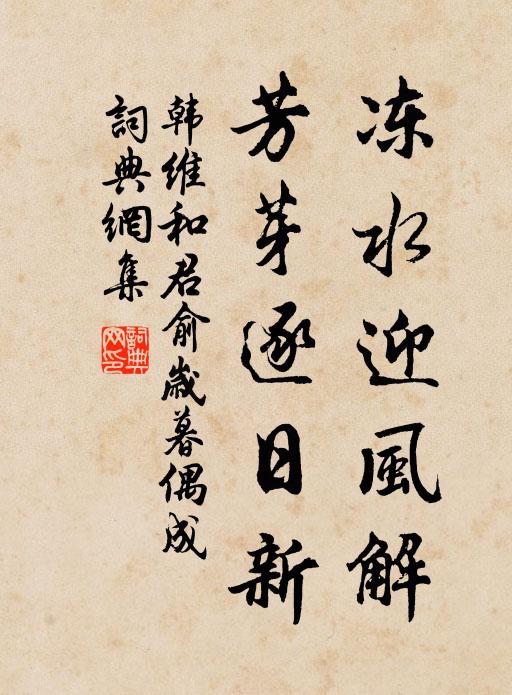 冻水迎風解
芳芽逐日新
韩维和君俞歲暮偶成
詞典網集
詞典网印